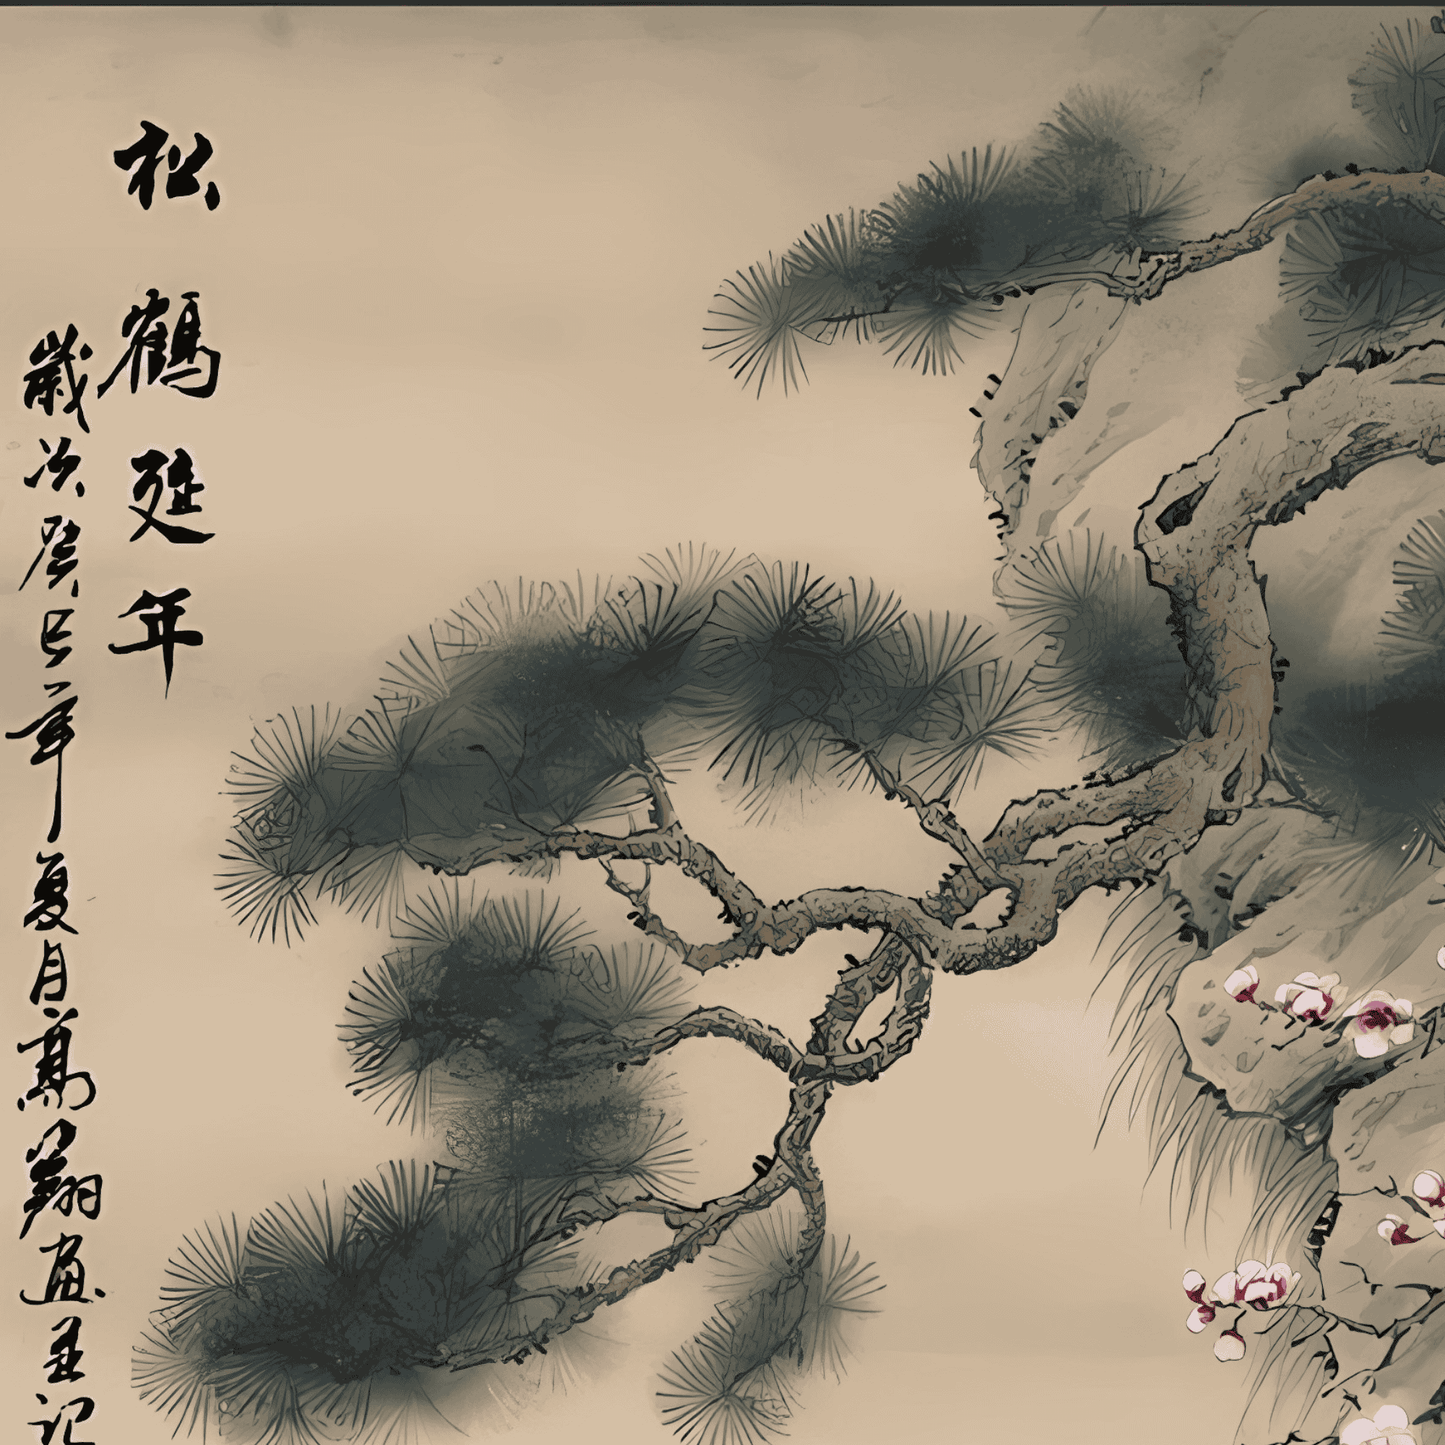 松鶴延年
歲次癸巳年夏月翔畫並记